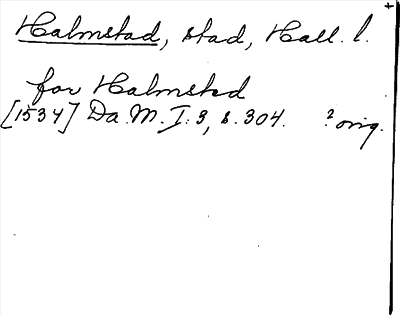 Halmstad, stad, Hall. l.
for Halmsted
[1534] Da. M. I: 3, s. 304. ? orig.